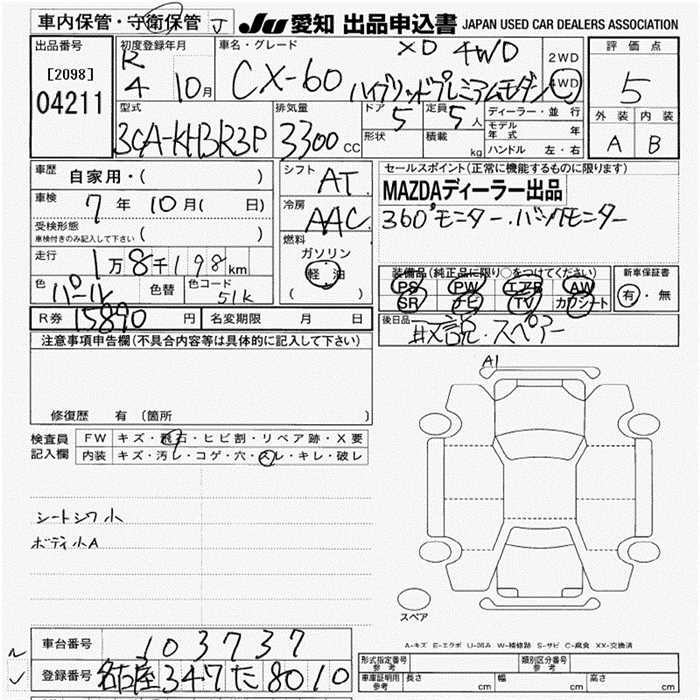 車内保管・守衛保管 J
JU 愛知 出品申込書 JAPAN USED CAR DEALERS ASSOCIATION
出品番号
[2098]
04211
初度登録年月
R
4 10月
車名・グレード
XD 4WD
CX-60 ハイブリッドプレミアムモダン
2WD
4WD
評価点
5
外装 内装
A B
型式
3CA-KH3R3P
排気量
3300 CC
ドア 5
形状
定員 5 人
積載 kg
ディーラー・並行
モデル年式 年
ハンドル 左・右
車歴 自家用・( )
車検 7年 10月( 日)
受検形態
車検付きのみ記入して下さい ( )
走行 1万8千198km
色 パール 色替 色コード 51K
シフト AT
冷房 AAC
燃料
ガソリン
軽・油
( )
セールスポイント(正常に機能するものに限ります)
MAZDAディーラー出品
360°モニター.バックモニター
装備品(純正品に限り○をつけてください)
PS PW エアB AW
SR ナビ TV カワシート
新車保証書
有・無
R券 15890円 名変期限 月 日
後日品
取説.スペアー
注意事項申告欄(不具合内容等は具体的に記入して下さい)
修復歴 有(箇所
検査員
記入欄
FW キズ・飛石・ヒビ割・リペア跡・X要
内装 キズ・汚レ・コゲ・穴・スレ・キレ・破レ
シートシワ小
ボディ小A
A1
スペア
A-キズ E-エクボ U-凹み W-補修跡 S-サビ C-腐食 XX-交換済
車台番号 103737
登録番号 名古屋347た8010
型式指定番号
参考
類別区分番号
参考
車庫証明用
参考
長さ cm 幅 cm 高さ cm